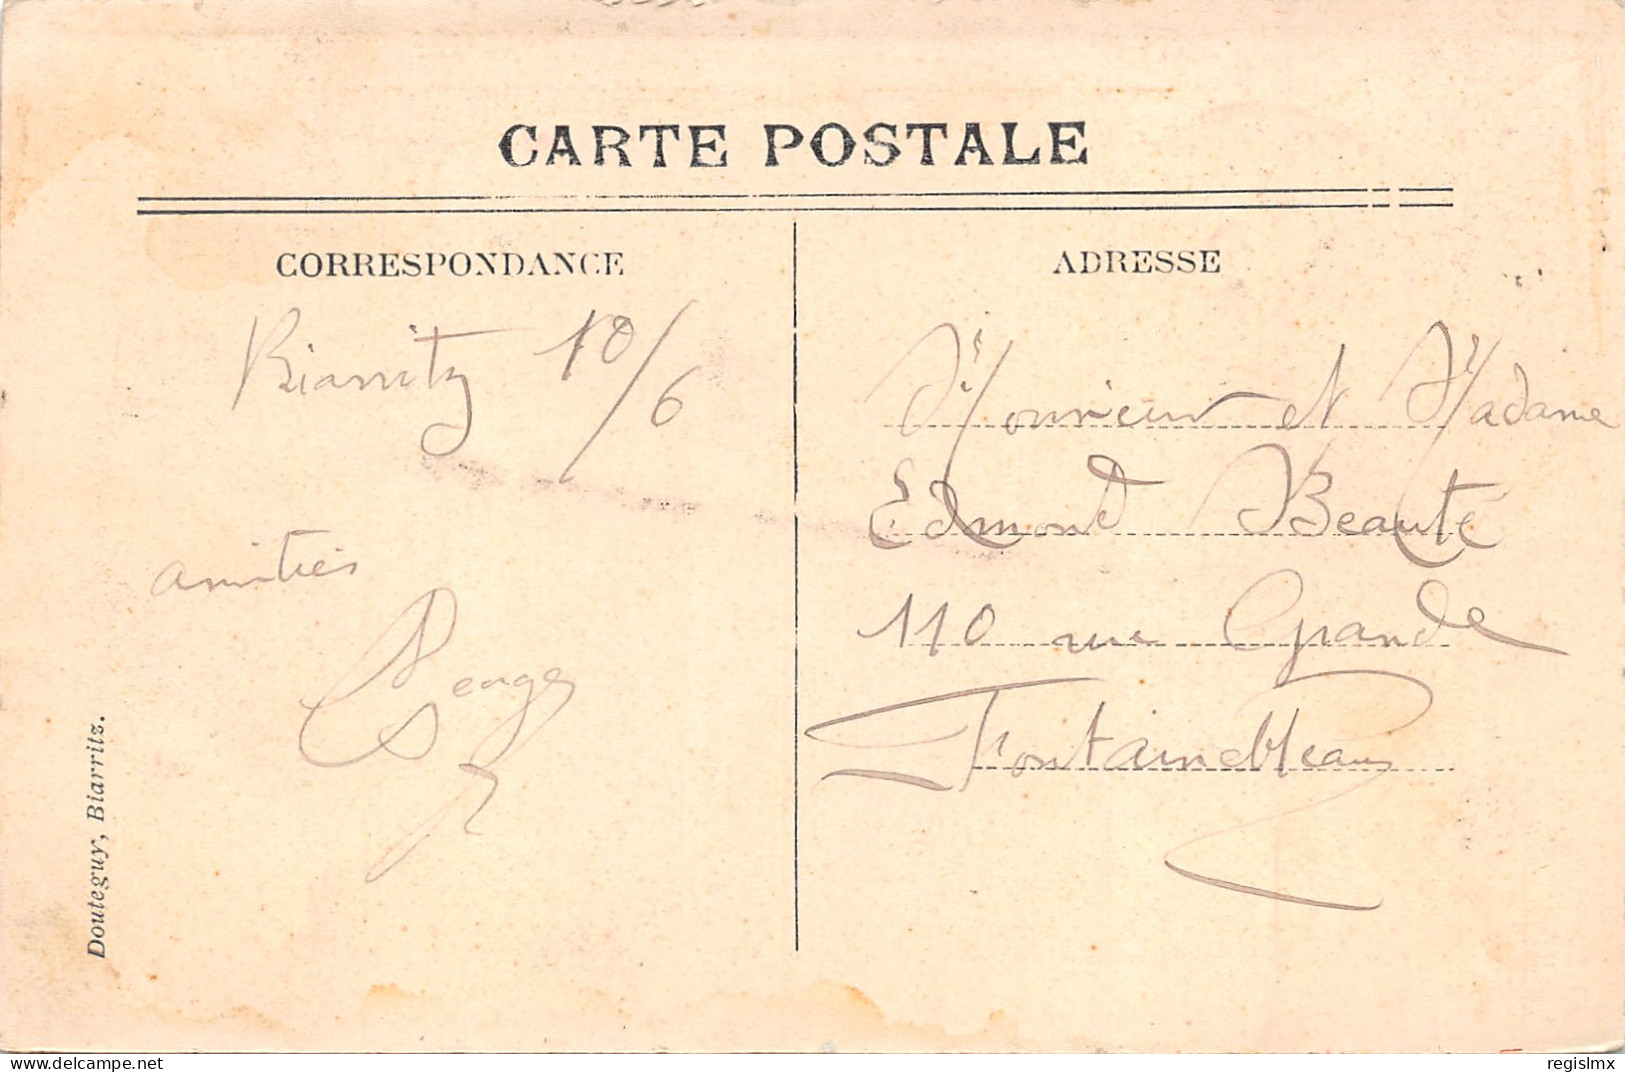 CARTE POSTALE
CORRESPONDANCE
Biarritz 10/6
amitiés
ADRESSE
Monsieur et Madame
Edmond Beauté
110 rue Grande
Fontainebleau
Douteguy, Biarritz.
regislmx